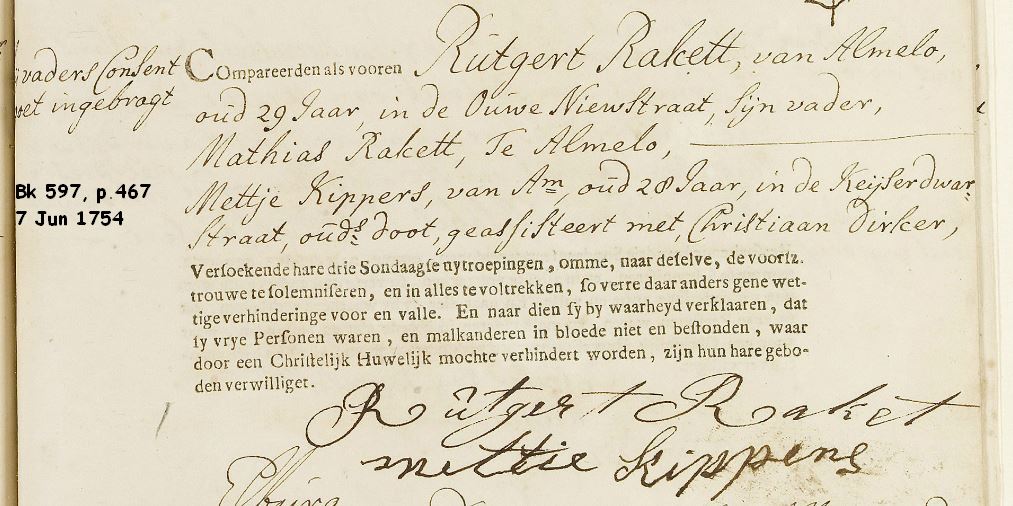 vaders Consent
ingebragt
Bk 597, p.467
7 Jun 1754
COmpareerden als vooren Rutgert Rakett, van Almelo,
oud 29 Jaar, in de Ouwe Niewstraat, Sijn vader,
Mathias Rakett, Te Almelo,
Mettje Kippers, van Am, oud 28 Jaar, in de Keijserdwar
Straat, ouds doot, geassisteert met, Christiaan Dirker,
Versoekende hare drie Sondaagse uytroepingen, omme, naar deselve, de voorsz.
trouwe te solemniseren, en in alles te voltrekken, so verre daar anders gene wet-
tige verhinderinge voor en valle. En naar dien sy by waarheyd verklaaren, dat
sy vrye Personen waren, en malkanderen in bloede niet en bestonden, waar
door een Christelijk Huwelijk mochte verhindert worden, zijn hun hare gebo-
den verwilliget.
Rutgert Raket
mettie Kippens